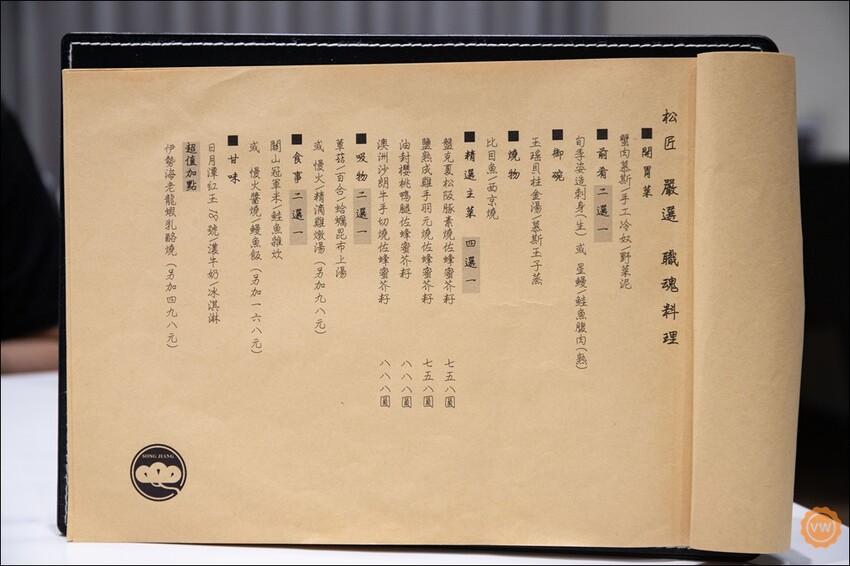 松匠 嚴選 職魂料理
■開胃菜
蟹肉慕斯/手工冷奴/野菜泥
■前肴 二選一
旬季姿造刺身(生) 或 星鰻/鮭魚腹肉(熟)
■御碗
玉瑤貝柱金湯/慕斯玉子蒸
■燒物
比目魚/西京燒
■精選主菜 四選一
盤克夏松阪豚素燒佐蜂蜜芥籽 七五八圓
鹽熟成雞手羽元燒佐蜂蜜芥籽 七五八圓
油封櫻桃鴨腿佐蜂蜜芥籽 八八八圓
澳洲沙朗牛手切燒佐蜂蜜芥籽 八八八圓
■吸物 二選一
蕈菇/百合/蛤蠣昆布上湯
或 慢火/精滴雞燉湯(另加九八元)
■食事 二選一
關山冠軍米/鮭魚雜炊
或 慢火醬燒/鰻魚飯(另加一六八元)
■甘味
日月潭紅玉18號/濃牛奶/冰淇淋
超值加點
伊勢海老龍蝦乳酪燒(另加四九八元)
SONG JIANG
VW